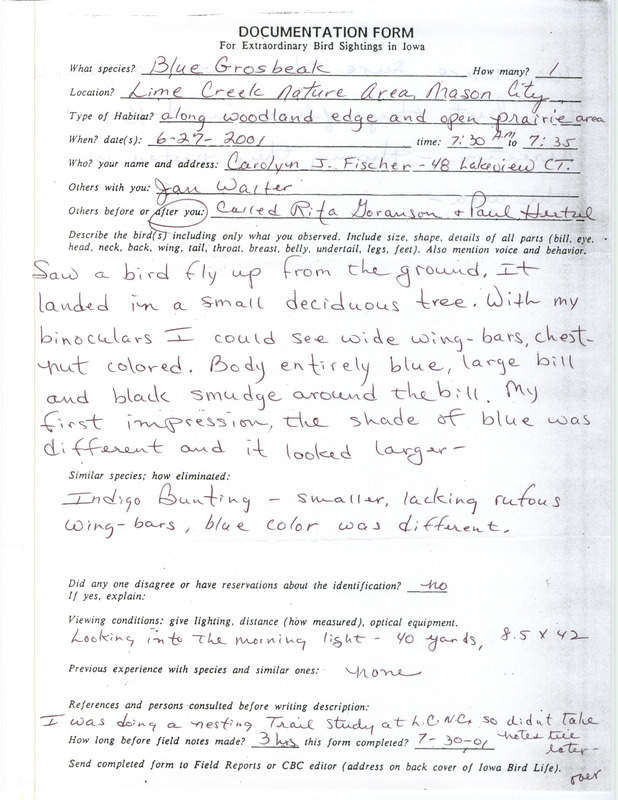 DOCUMENTATION FORM
For Extraordinary Bird Sightings in Iowa
What species? Blue Grosbeak How many? 1
Location? Lime Creek Nature Area, Mason City
Type of Habitat? along woodland edge and open prairie area
When? date(s): 6-27-2001 time: 7:30 AM to 7:35
Who? your name and address: Carolyn J. Fischer - 48 Lakeview CT.
Others with you: Jan Walter
Others before or after you: Called Rita Goranson + Paul Hertzel
Describe the bird(s) including only what you observed. Include size, shape, details of all parts (bill, eye,
head, neck, back, wing, tail, throat, breast, belly, undertail, legs, feet). Also mention voice and behavior.
Saw a bird fly up from the ground. It
landed in a small deciduous tree. With my
binoculars I could see wide wing-bars, chest-
nut colored. Body entirely blue, large bill
and black smudge around the bill. My
first impression, the shade of blue was
different and it looked larger-
Similar species; how eliminated:
Indigo Bunting - smaller, lacking rufous
wing-bars, blue color was different.
Did any one disagree or have reservations about the identification? no
If yes, explain:
Viewing conditions: give lighting, distance (how measured), optical equipment.
Looking into the morning light - 40 yards, 8.5 x 42
Previous experience with species and similar ones: none
References and persons consulted before writing description:
I was doing a nesting Trail study at L.C.N.C. so didn't take
notes till
How long before field notes made? 3 hrs this form completed? 7-30-01
later-
Send completed form to Field Reports or CBC editor (address on back cover of Iowa Bird Life).
over